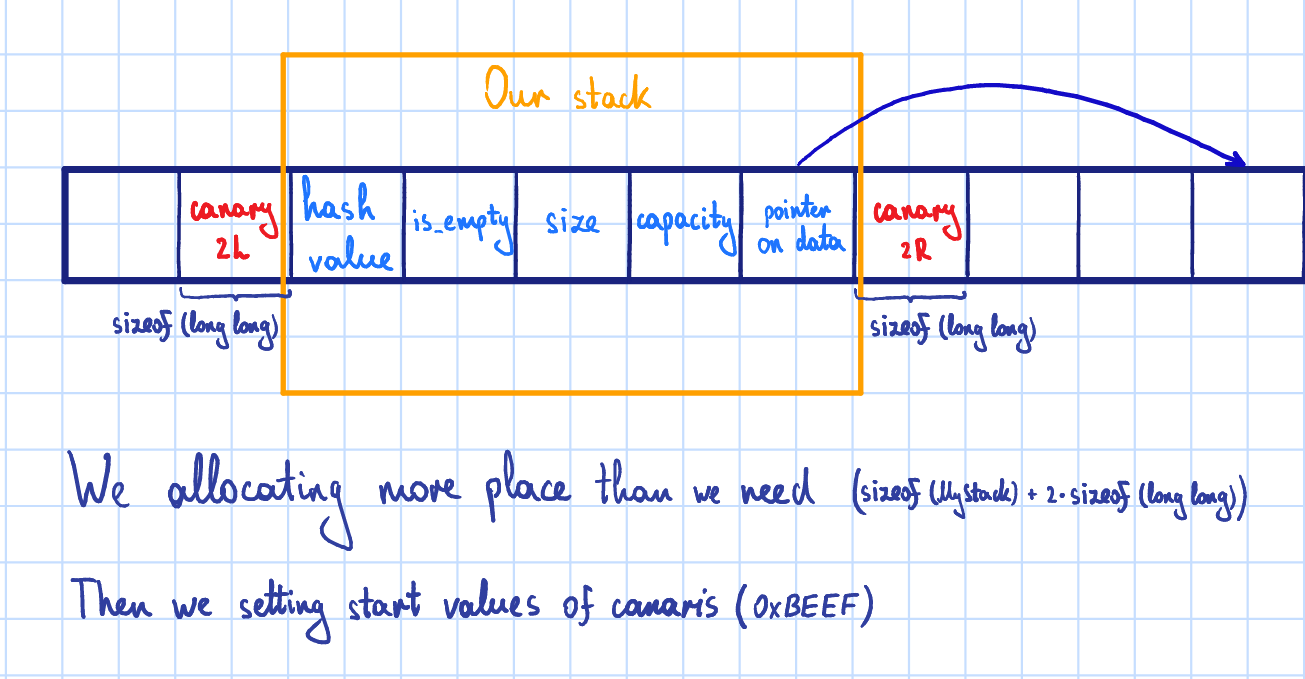 Our stack
canary
2L
hash
value
is_empty
size
capacity
pointer
on data
canary
2R
sizeof (long long)
sizeof (long long)
We allocating more place than we need (sizeof (MyStack) + 2·sizeof (long long))
Then we setting start values of canaris (0xBEEF)